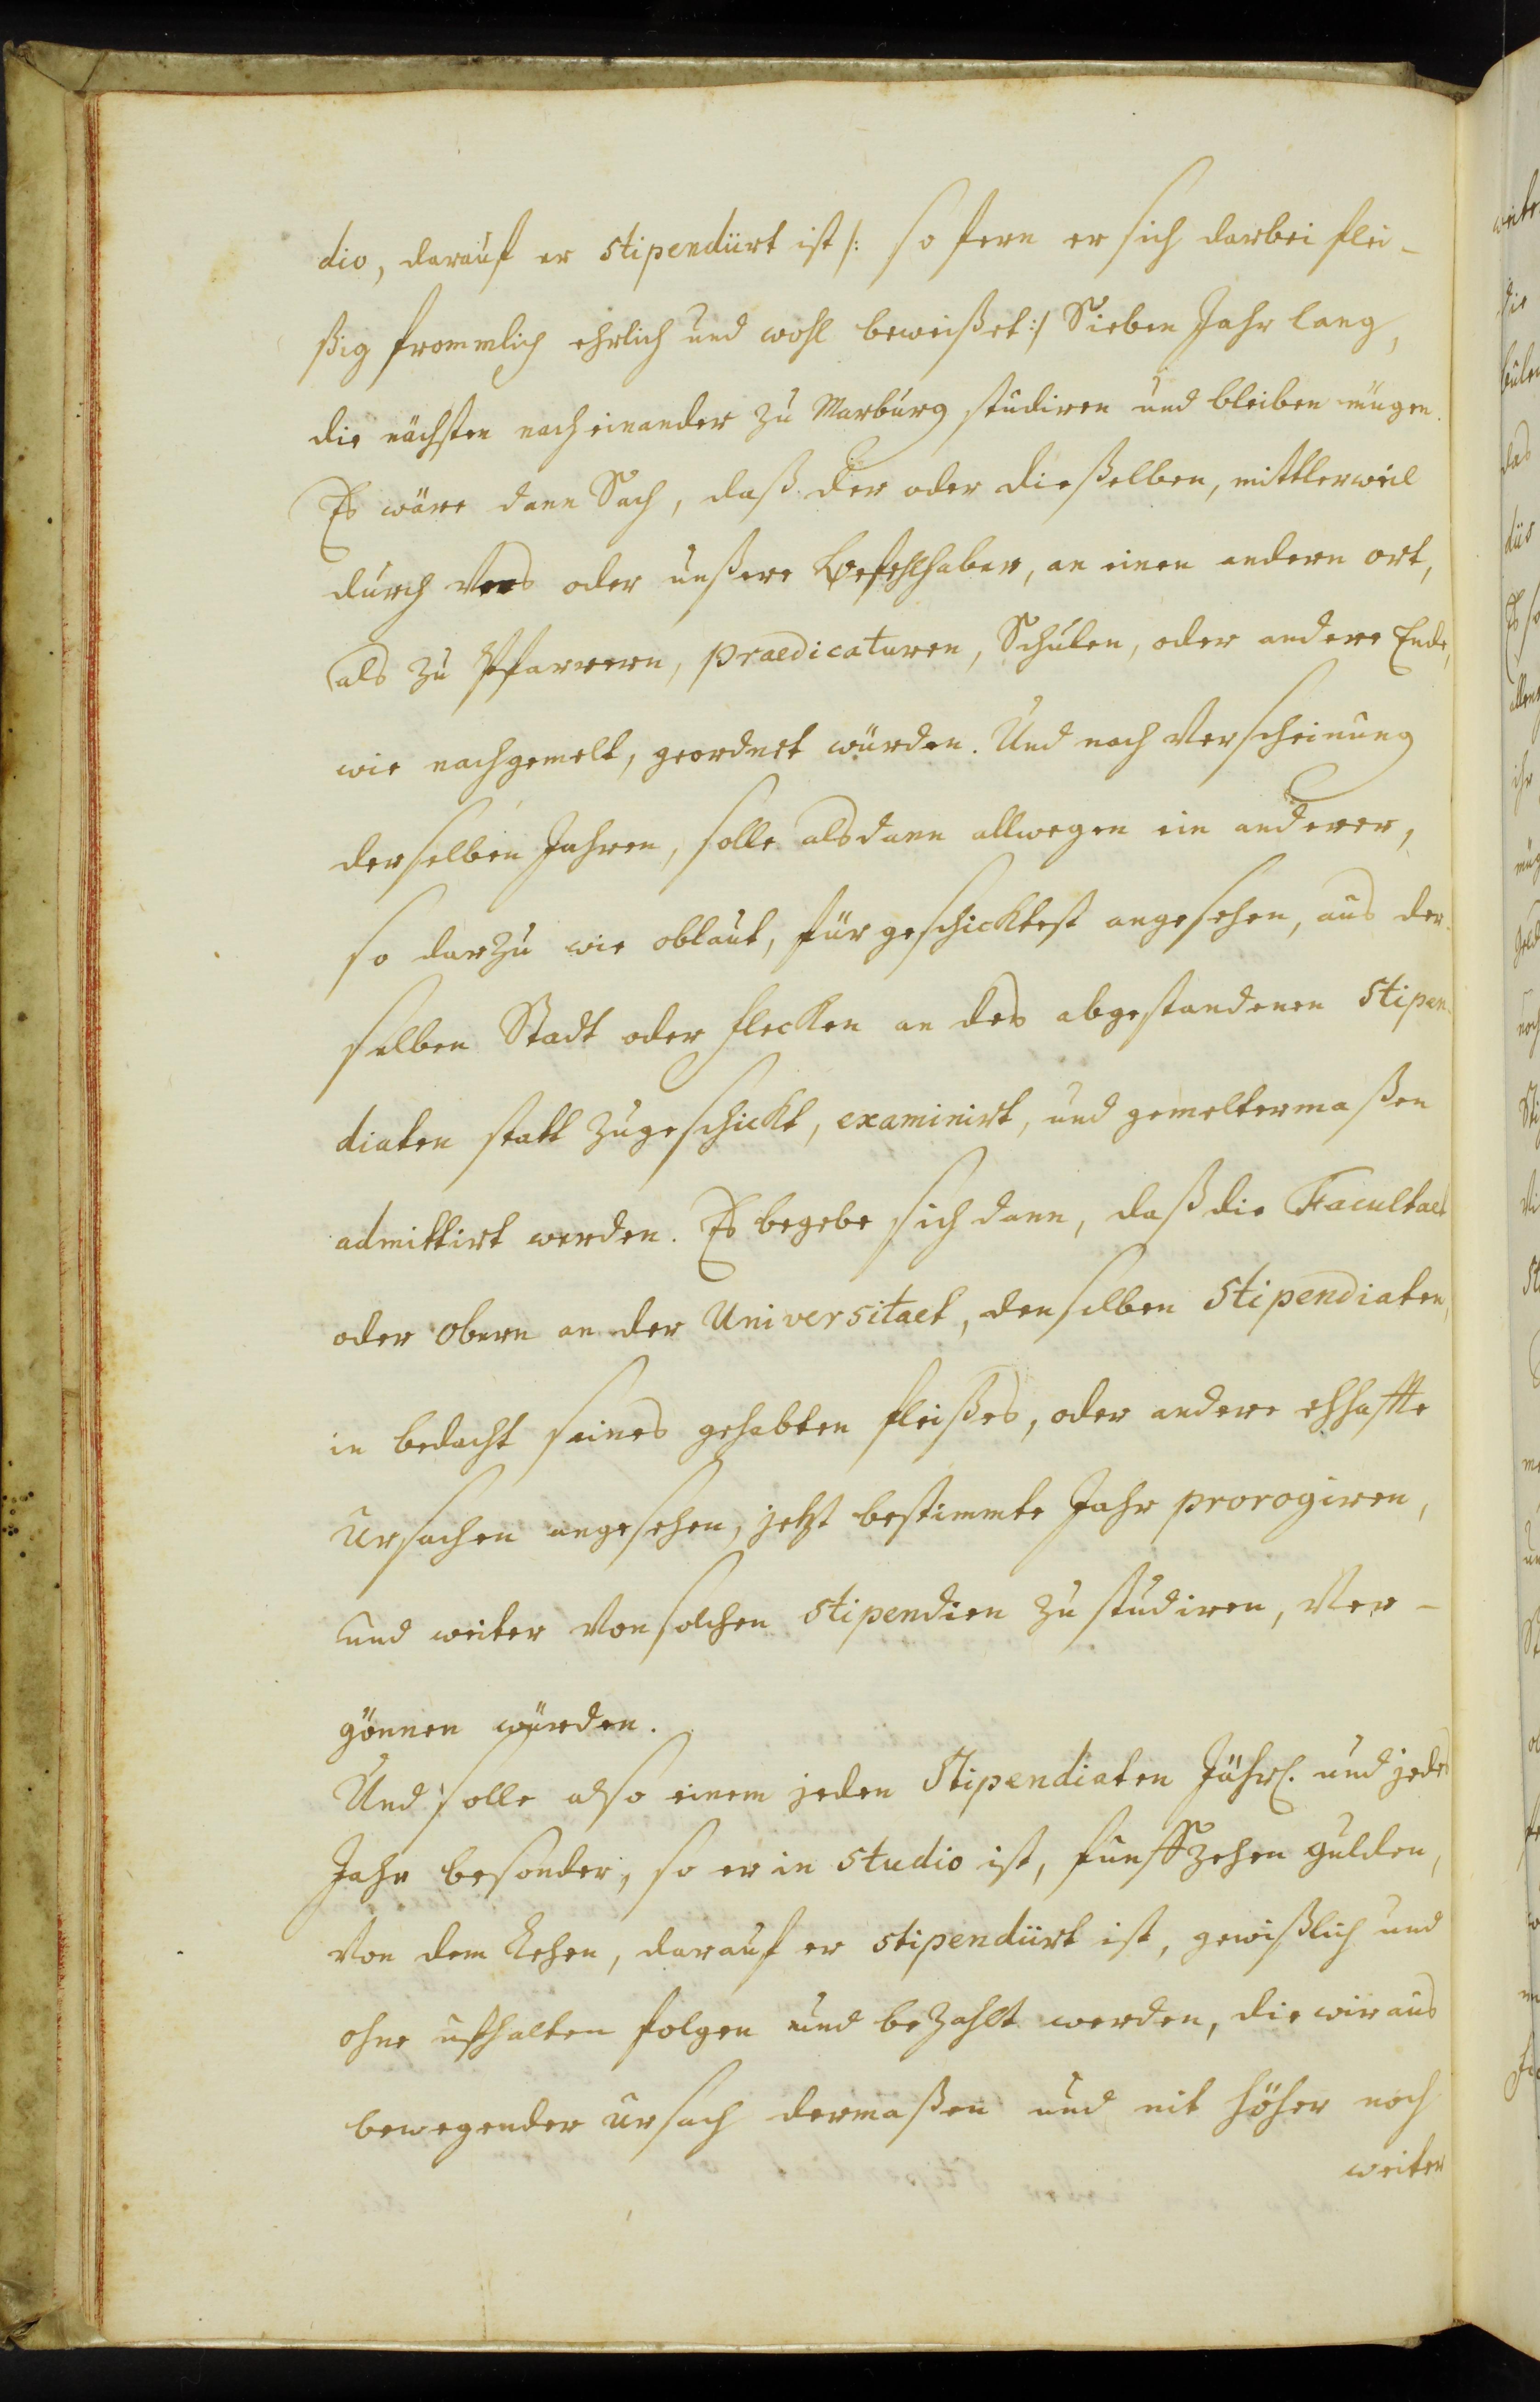 dio, darauf er stipendiirt ist /: so fern er sich darbei flei-
ßig frommlich ehrlich und wohl beweißet :/ Sieben Jahr lang,
die nächsten nach einander zu Marburg studiren und bleiben mügen.
Es wäre dann Sach, daß der oder dießelben, mittlerweil
durch Vns oder unßere Befehlhaber, an einen andern ort,
als zu Pfarrern, praedicaturen, Schulen, oder andere Ende,
wie nachgemelt, geordnet würden. Und nach Verscheinung
derselben Jahren, solle alsdann allwegen ein anderer,
so darzu wie oblaut, für geschicktest angesehen, aus der-
selben Stadt oder flecken an des abgestandenen Stipen-
diaten statt zugeschickt, examinirt, und gemeltermaßen
admittirt werden. Es begebe sich dann, daß die Facultaet
oder Obern an der Universitaet, denselben Stipendiaten,
in bedacht seines gehabten fleißes, oder andere ehhaffte
Ursachen angesehen, jetzt bestimmte Jahr prorogiren,
und weiter von solchen stipendien zu studiren, Ver-
gönnen würden.
Und solle also einem jeden Stipendiaten Jährl. und jedes
Jahr besonder, so er in studio ist, funffzehen gulden,
von dem Lehen, darauf er stipendiirt ist, gewißlich und
ohne ufhalten folgen und bezahlt werden, die wir aus
bewegender Ursach dermaßen und nit höher noch
weiter